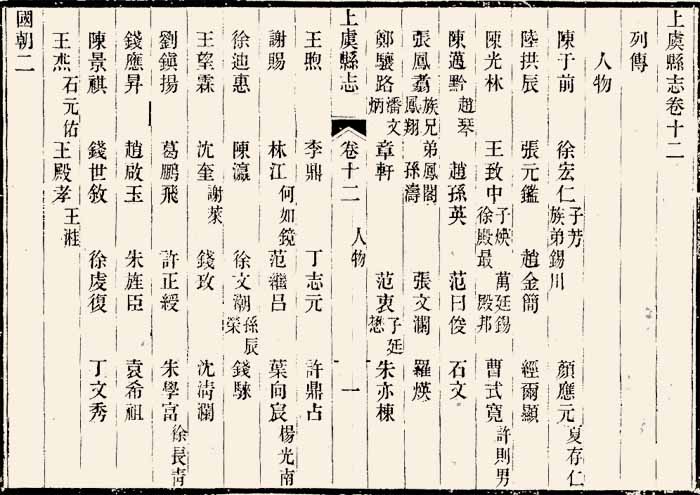 上虞縣志卷十二
列傳
人物
陳于前 徐宏仁 子芳 族弟錫川 顏應元 夏存仁
陸拱辰 張元鑑 趙金簡 經爾顯
陳光林 王致中 子煐 徐殿最 萬廷錫 殿邦 曹式寬 許則男
陳邁黔 趙琴 趙孫英 范曰俊 石文
張鳳翥 族兄鳳翔 弟鳳閣 孫濤 張文瀾 羅煐
鄭驤路 潘文炳 章軒 范衷 子廷懋 朱亦棟
上虞縣志 卷十二 人物 一
王煦 李鼎 丁志元 許鼎占
謝賜 林江 何如鏡 范繼呂 葉向宸 楊光南
徐迪惠 陳瀛 徐文潮 孫辰榮 錢騋
王望霖 沈奎 謝萊 錢玫 沈淸瀾
劉鎭揚 葛鵬飛 許正綬 朱學富 徐長靑
錢應昇 趙啟玉 朱旌臣 袁希祖
陳景祺 錢世敘 徐虔復 丁文秀
王燾 石元佑 王殿孝 王淮
國朝二